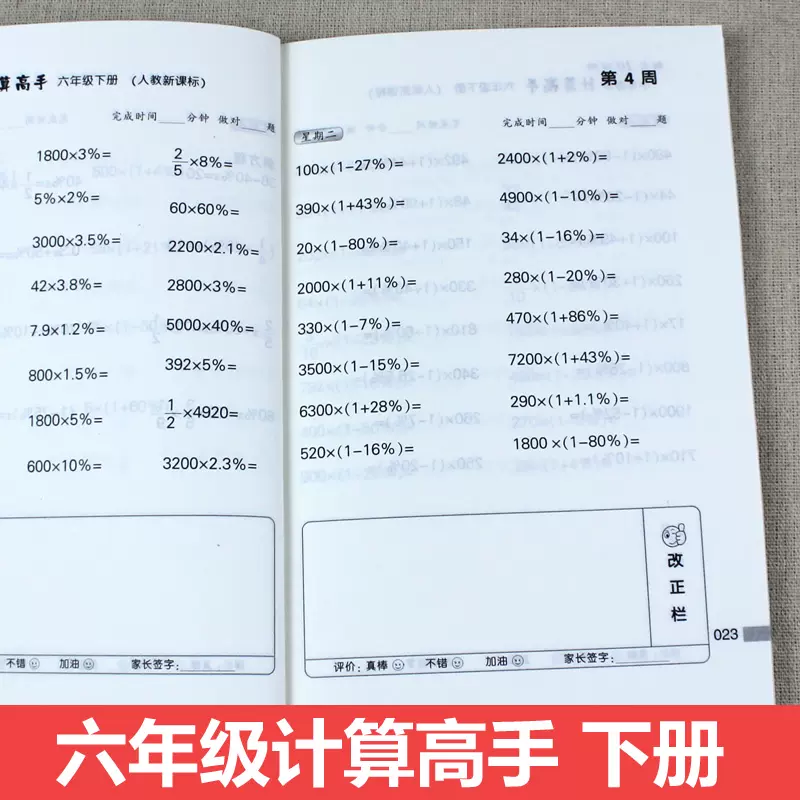 算高手 六年级下册 (人教新课标)
完成时间____分钟 做对____题
1800×3%= 2/5×8%=
5%×2%= 60×60%=
3000×3.5%= 2200×2.1%=
42×3.8%= 2800×3%=
7.9×1.2%= 5000×40%=
800×1.5%= 392×5%=
1800×5%= 1/2×4920=
600×10%= 3200×2.3%=
不错 加油 家长签字:______
第4周
星期二 完成时间____分钟 做对____题
100×(1-27%)= 2400×(1+2%)=
390×(1+43%)= 4900×(1-10%)=
20×(1-80%)= 34×(1-16%)=
2000×(1+11%)= 280×(1-20%)=
330×(1-7%)= 470×(1+86%)=
3500×(1-15%)= 7200×(1+43%)=
6300×(1+28%)= 290×(1+1.1%)=
520×(1-16%)= 1800×(1-80%)=
改正栏
023
评价:真棒 不错 加油 家长签字:______
六年级计算高手 下册